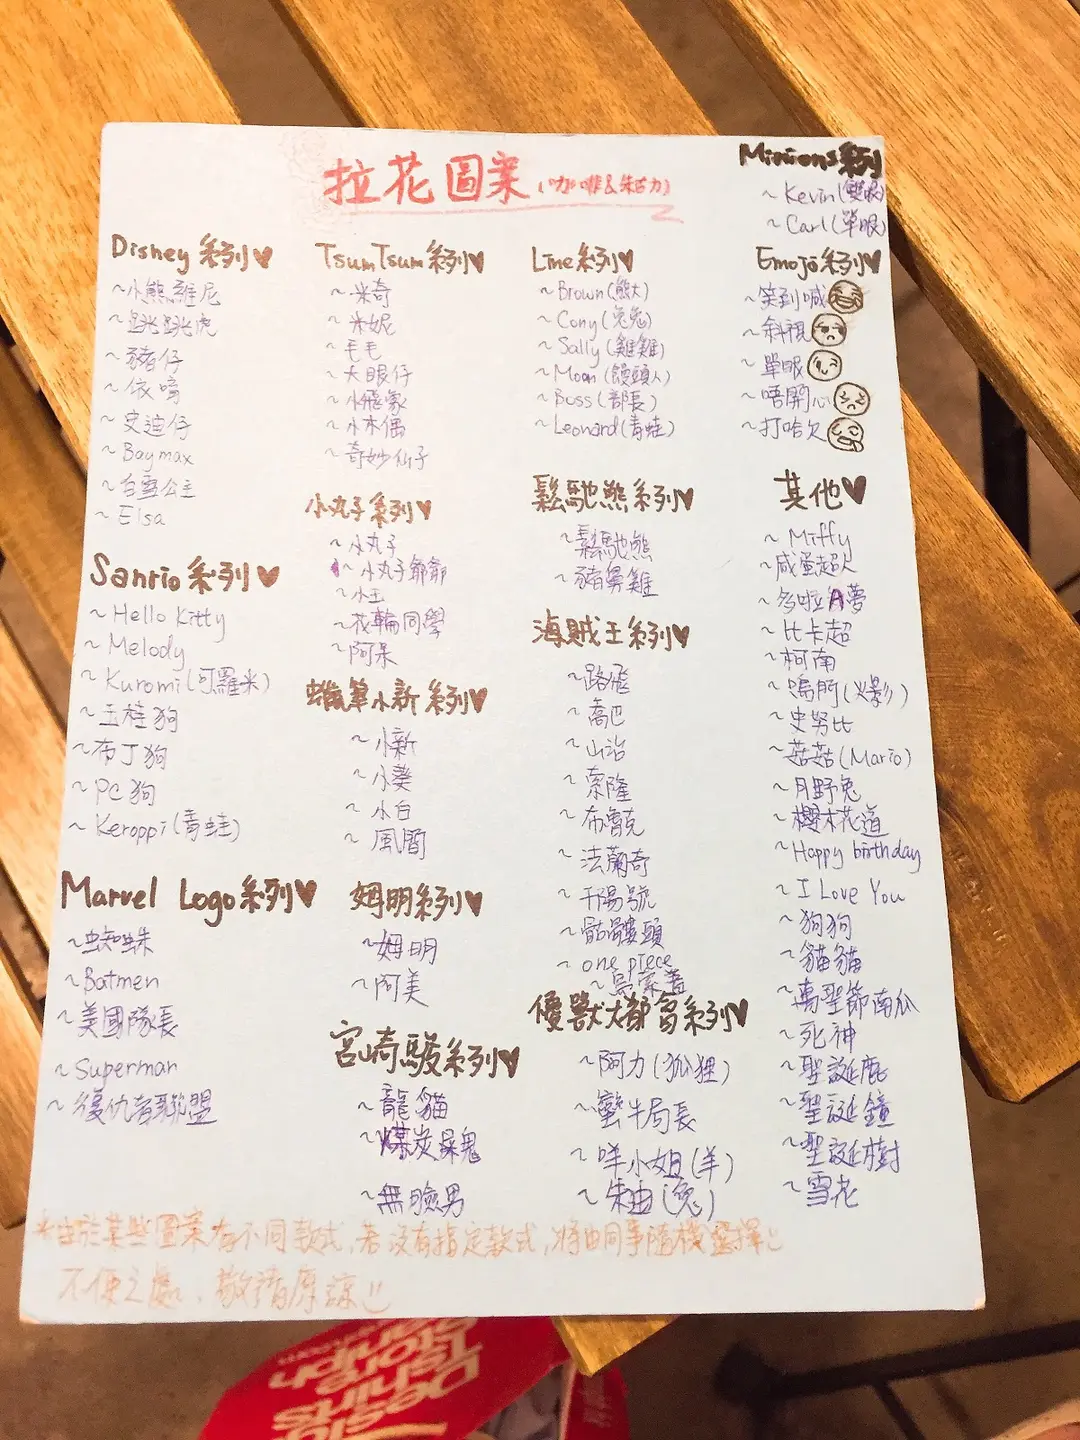 拉花圖案(咖啡&朱古力)
Disney系列♥
~小熊維尼
~跳跳虎
~豬仔
~依唷
~史迪仔
~Baymax
~白雪公主
~Elsa
Sanrio系列♥
~Hello Kitty
~Melody
~Kuromi(可羅米)
~玉桂狗
~布丁狗
~PC狗
~Keroppi(青蛙)
Marvel Logo系列♥
~蜘蛛
~Batmen
~美國隊長
~Superman
~復仇者聯盟
TsumTsum系列♥
~米奇
~米妮
~毛毛
~大眼仔
~小飛象
~小木偶
~奇妙仙子
小丸子系列♥
~小丸子
~小丸子爺爺
~小玉
~花輪同學
~阿呆
蠟筆小新系列♥
~小新
~小葵
~小白
~風間
姆明系列♥
~姆明
~阿美
宮崎駿系列♥
~龍貓
~煤炭屎鬼
~無臉男
Line系列♥
~Brown(熊大)
~Cony(兔兔)
~Sally(雞雞)
~Moon(饅頭人)
~Boss(部長)
~Leonard(青蛙)
鬆馳熊系列♥
~鬆馳熊
~豬鼻雞
海賊王系列♥
~路飛
~喬巴
~山治
~索隆
~布魯克
~法蘭奇
~千陽號
~骷髏頭
~one piece
~烏索蓋
優獸大都會系列♥
~阿力(狐狸)
~蠻牛局長
~咩小姐(羊)
~朱迪(兔)
Minions系列
~Kevin(雙眼)
~Carl(單眼)
Emoji系列♥
~笑到喊
~斜視
~單眼
~唔開心
~打哈欠
其他♥
~Miffy
~咸蛋超人
~多啦A夢
~比卡超
~柯南
~鳴門(火影)
~史努比
~菇菇(Mario)
~月野兔
~櫻木花道
~Happy birthday
~I Love You
~狗狗
~貓貓
~萬聖節南瓜
~死神
~聖誕鹿
~聖誕鐘
~聖誕樹
~雪花
*由於某些圖案有不同款式,若沒有指定款式,將由同事隨機選擇
不便之處、敬請原諒